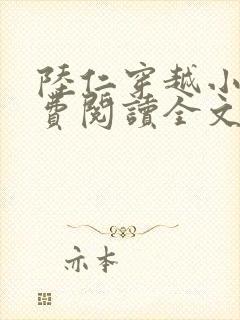 陸仁穿越小
費閱讀全文
亦本